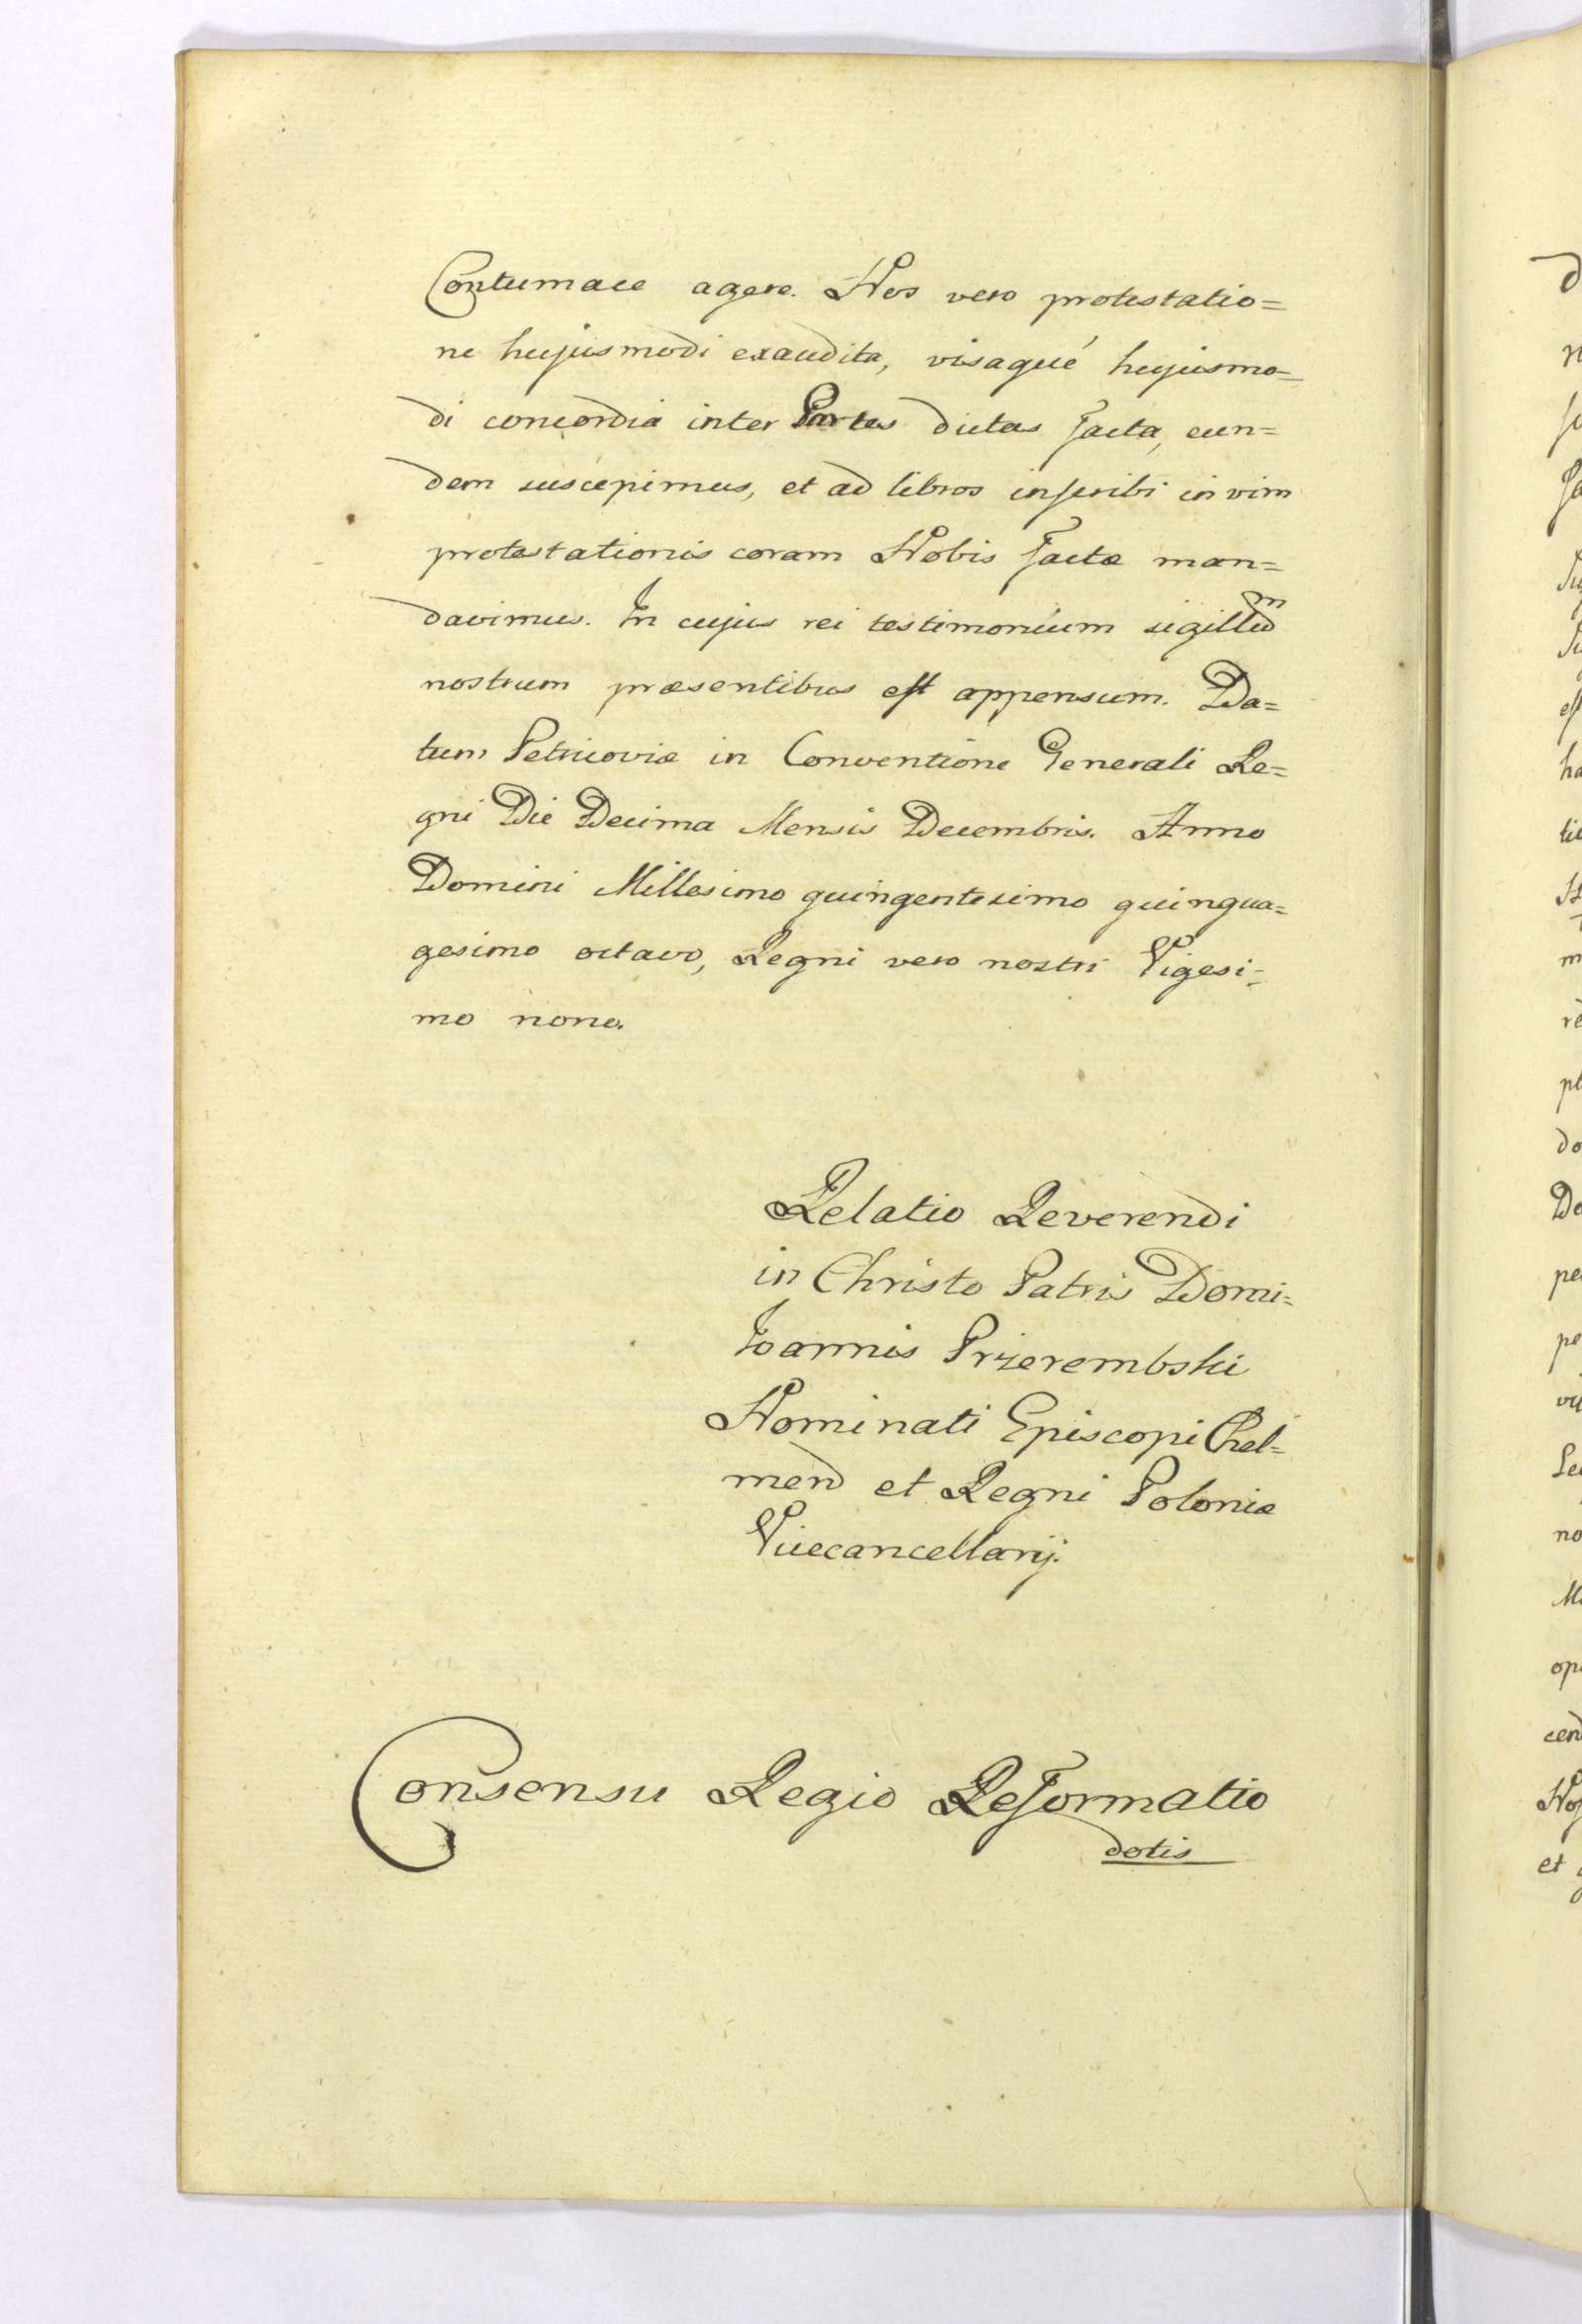 Contumace agere. Nos vero protestatio=
ne hujusmodi exaudita, visaqué hujusmo=
di concordia inter Partes dictas facta, eun=
dem suscepimus, et ad libros inscribi in vim
protestationis coram Nobis factæ man=
davimus. In cujus rei testimonium sigillum
nostrum præsentibus est appensum. Da=
tum Petricoviæ in Conventione Generali Re=
gni Die Decima Mensis Decembris. Anno
Domini Millesimo quingentesimo quinqua=
gesimo octavo, Regni vero nostri Vigesi=
mo nono.
Relatio Reverendi
in Christo Patris Domi=
Ioannis Przerembski
Nominati Episcopi Chel=
men et Regni Poloniæ
Vicecancellarij.
Consensu Regio Reformatio
dotis